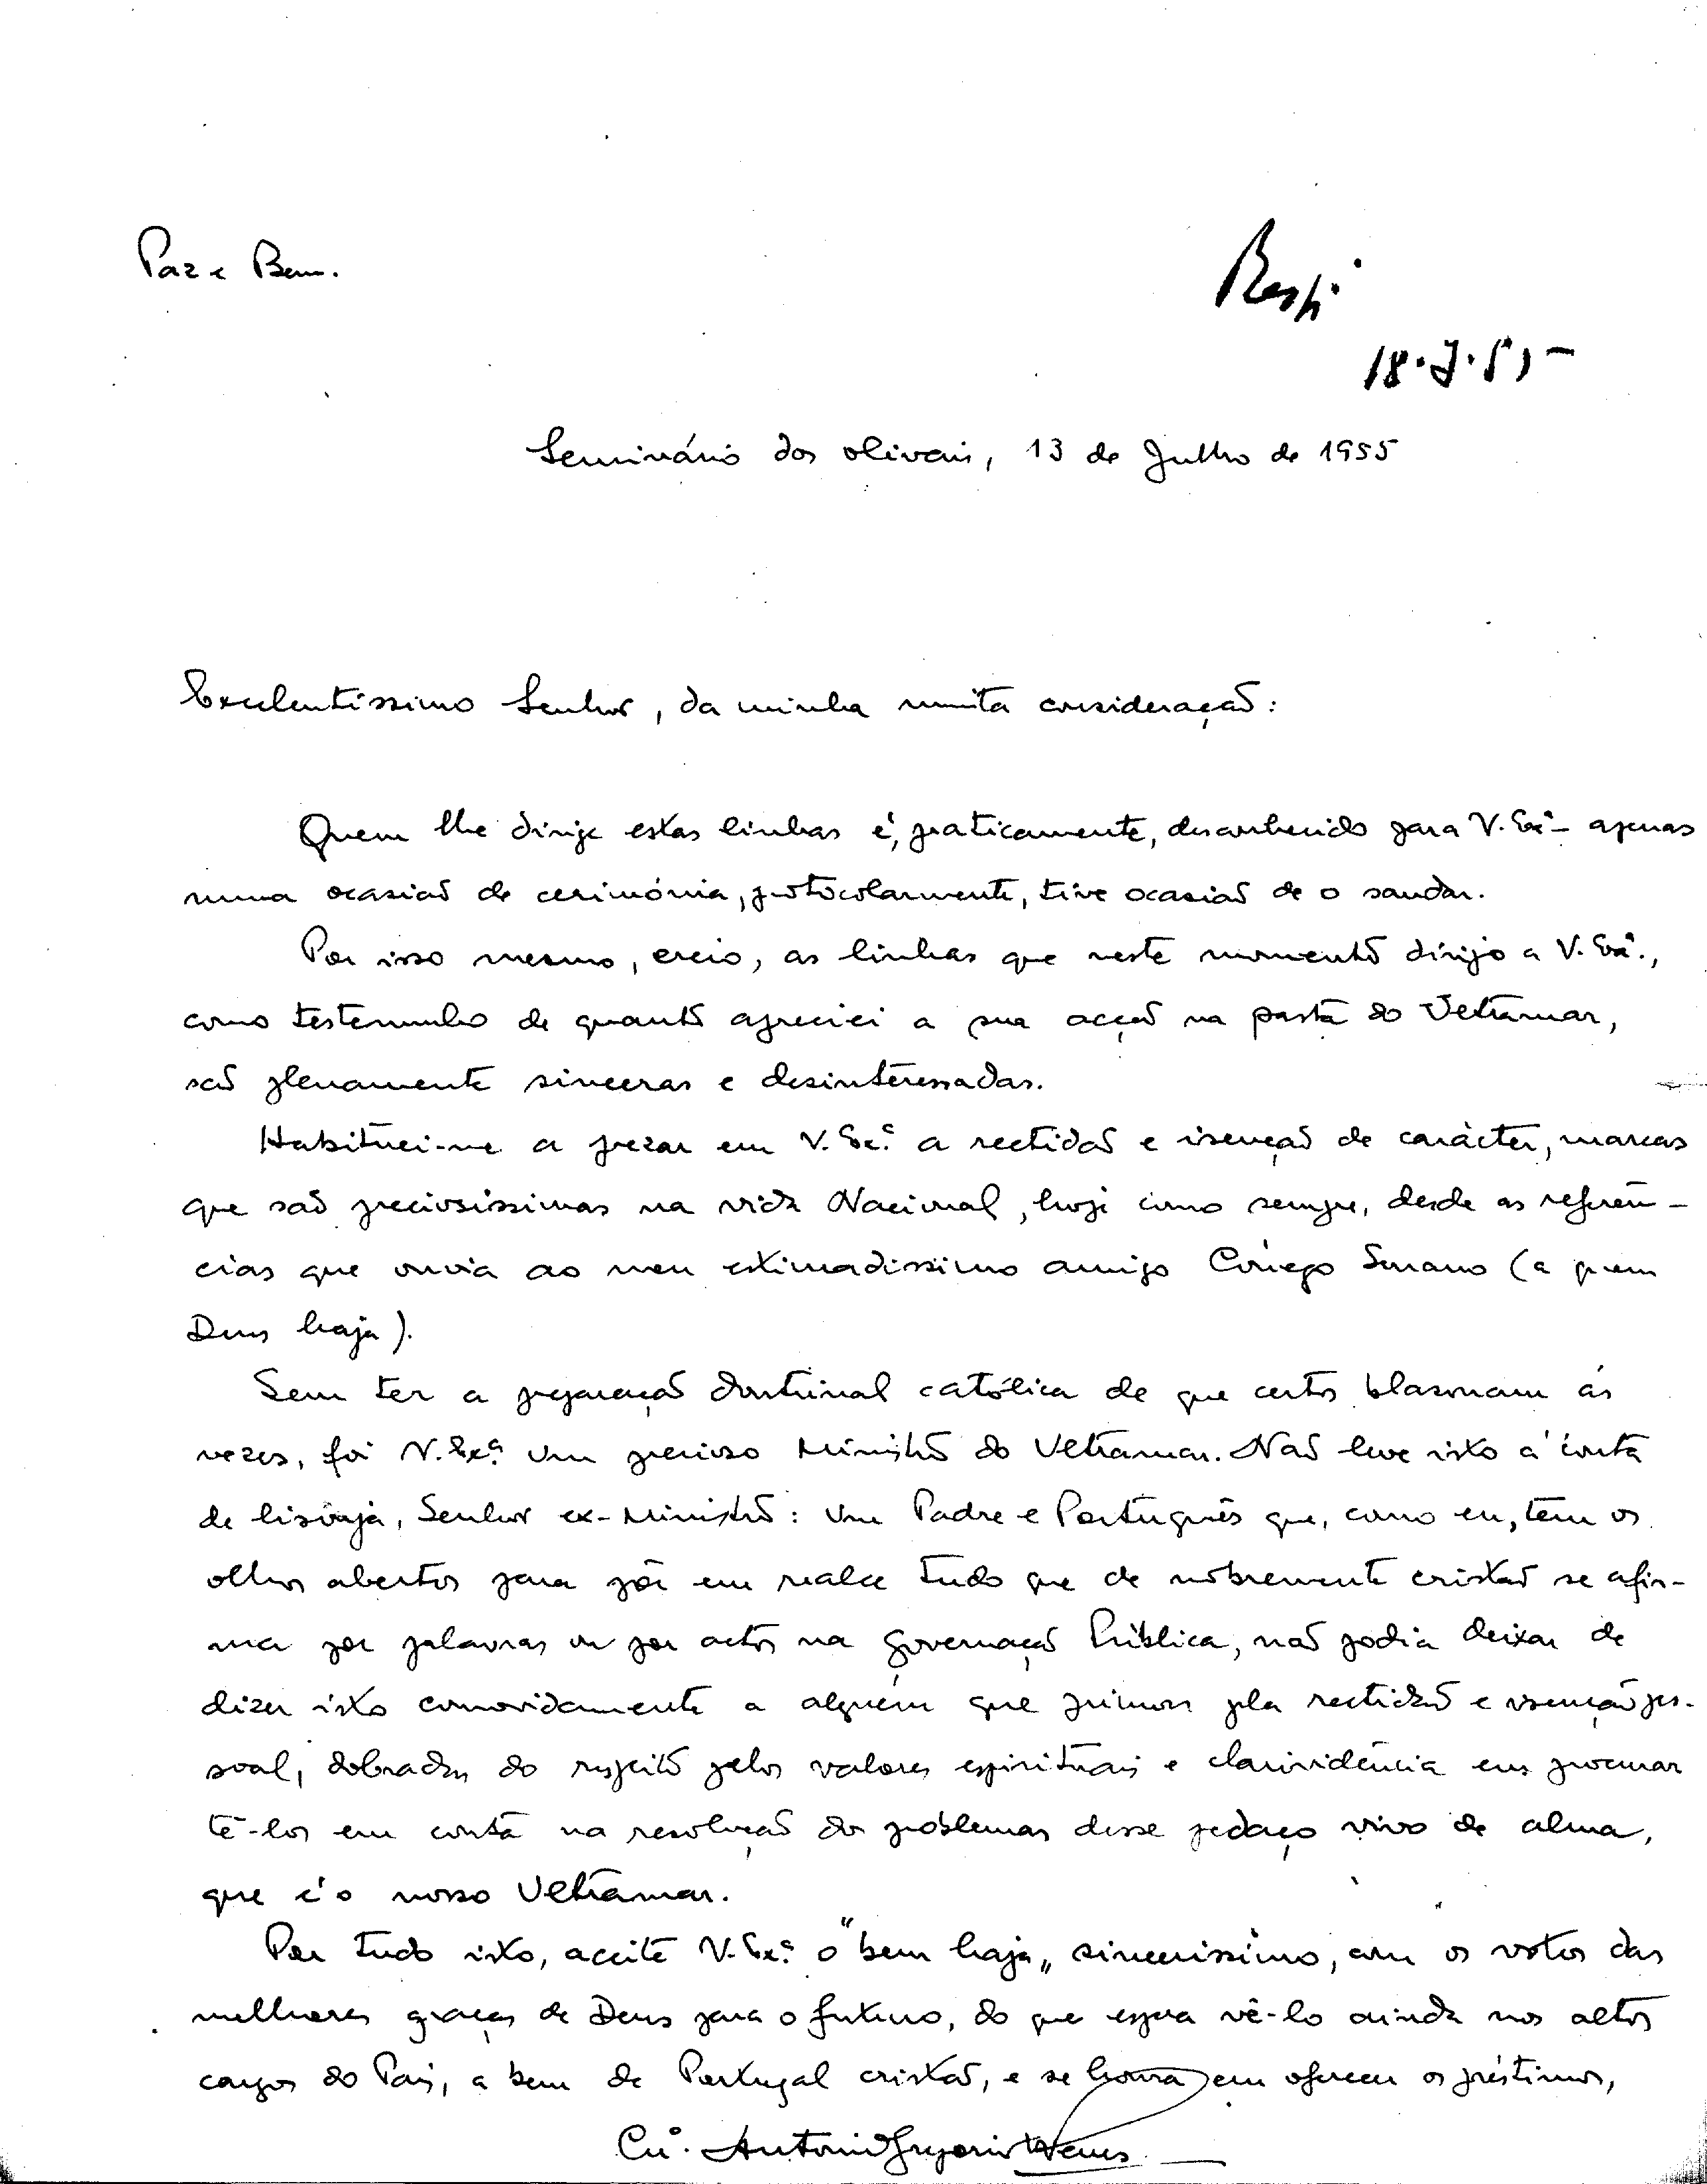 Paz e Bem.
Resp.
18.7.55
Seminário dos Olivais, 13 de Julho de 1955
Excelentíssimo Senhor, da minha muita consideração:
Quem lhe dirije estas linhas é, praticamente, desconhecido para V. Exª - apenas
numa ocasião de cerimónia, protocolarmente, tive ocasião de o saudar.
Por isso mesmo, creio, as linhas que neste momento dirijo a V. Exª.,
como testemunho de quanto apreciei a sua acção na pasta do Ultramar,
são plenamente sinceras e desinteressadas.
Habituei-me a prezar em V. Exª. a rectidão e isenção de carácter, marcas
que são preciosíssimas na vida Nacional, hoje como sempre, desde as referên-
cias que ouvia ao meu estimadíssimo amigo Cónego Serrano (a quem
Deus haja).
Sem ter a preparação doutrinal católica de que certos blasonam às
vezes, foi V. Exª. um precioso Ministro do Ultramar. Não leve isto à conta
de lisonja, Senhor ex-Ministro: um Padre e Português que, como eu, tem os
olhos abertos para pôr em realce tudo que de nobremente cristão se afir-
ma por palavras ou por actos na governação Pública, não podia deixar de
dizer isto comovidamente a alguém que primou pela rectidão e isenção pes-
soal, dobradas do respeito pelos valores espirituais e clarividência em procurar
tê-los em conta na resolução dos problemas desse pedaço vivo de alma,
que é o nosso Ultramar.
Por tudo isto, aceite V. Exª. o "bem haja" sinceríssimo, com os votos das
melhores graças de Deus para o futuro, do que espera vê-lo ainda nos altos
cargos do País, a bem de Portugal cristão, e se honra em oferecer os préstimos,
Cº. António Gregório Neves